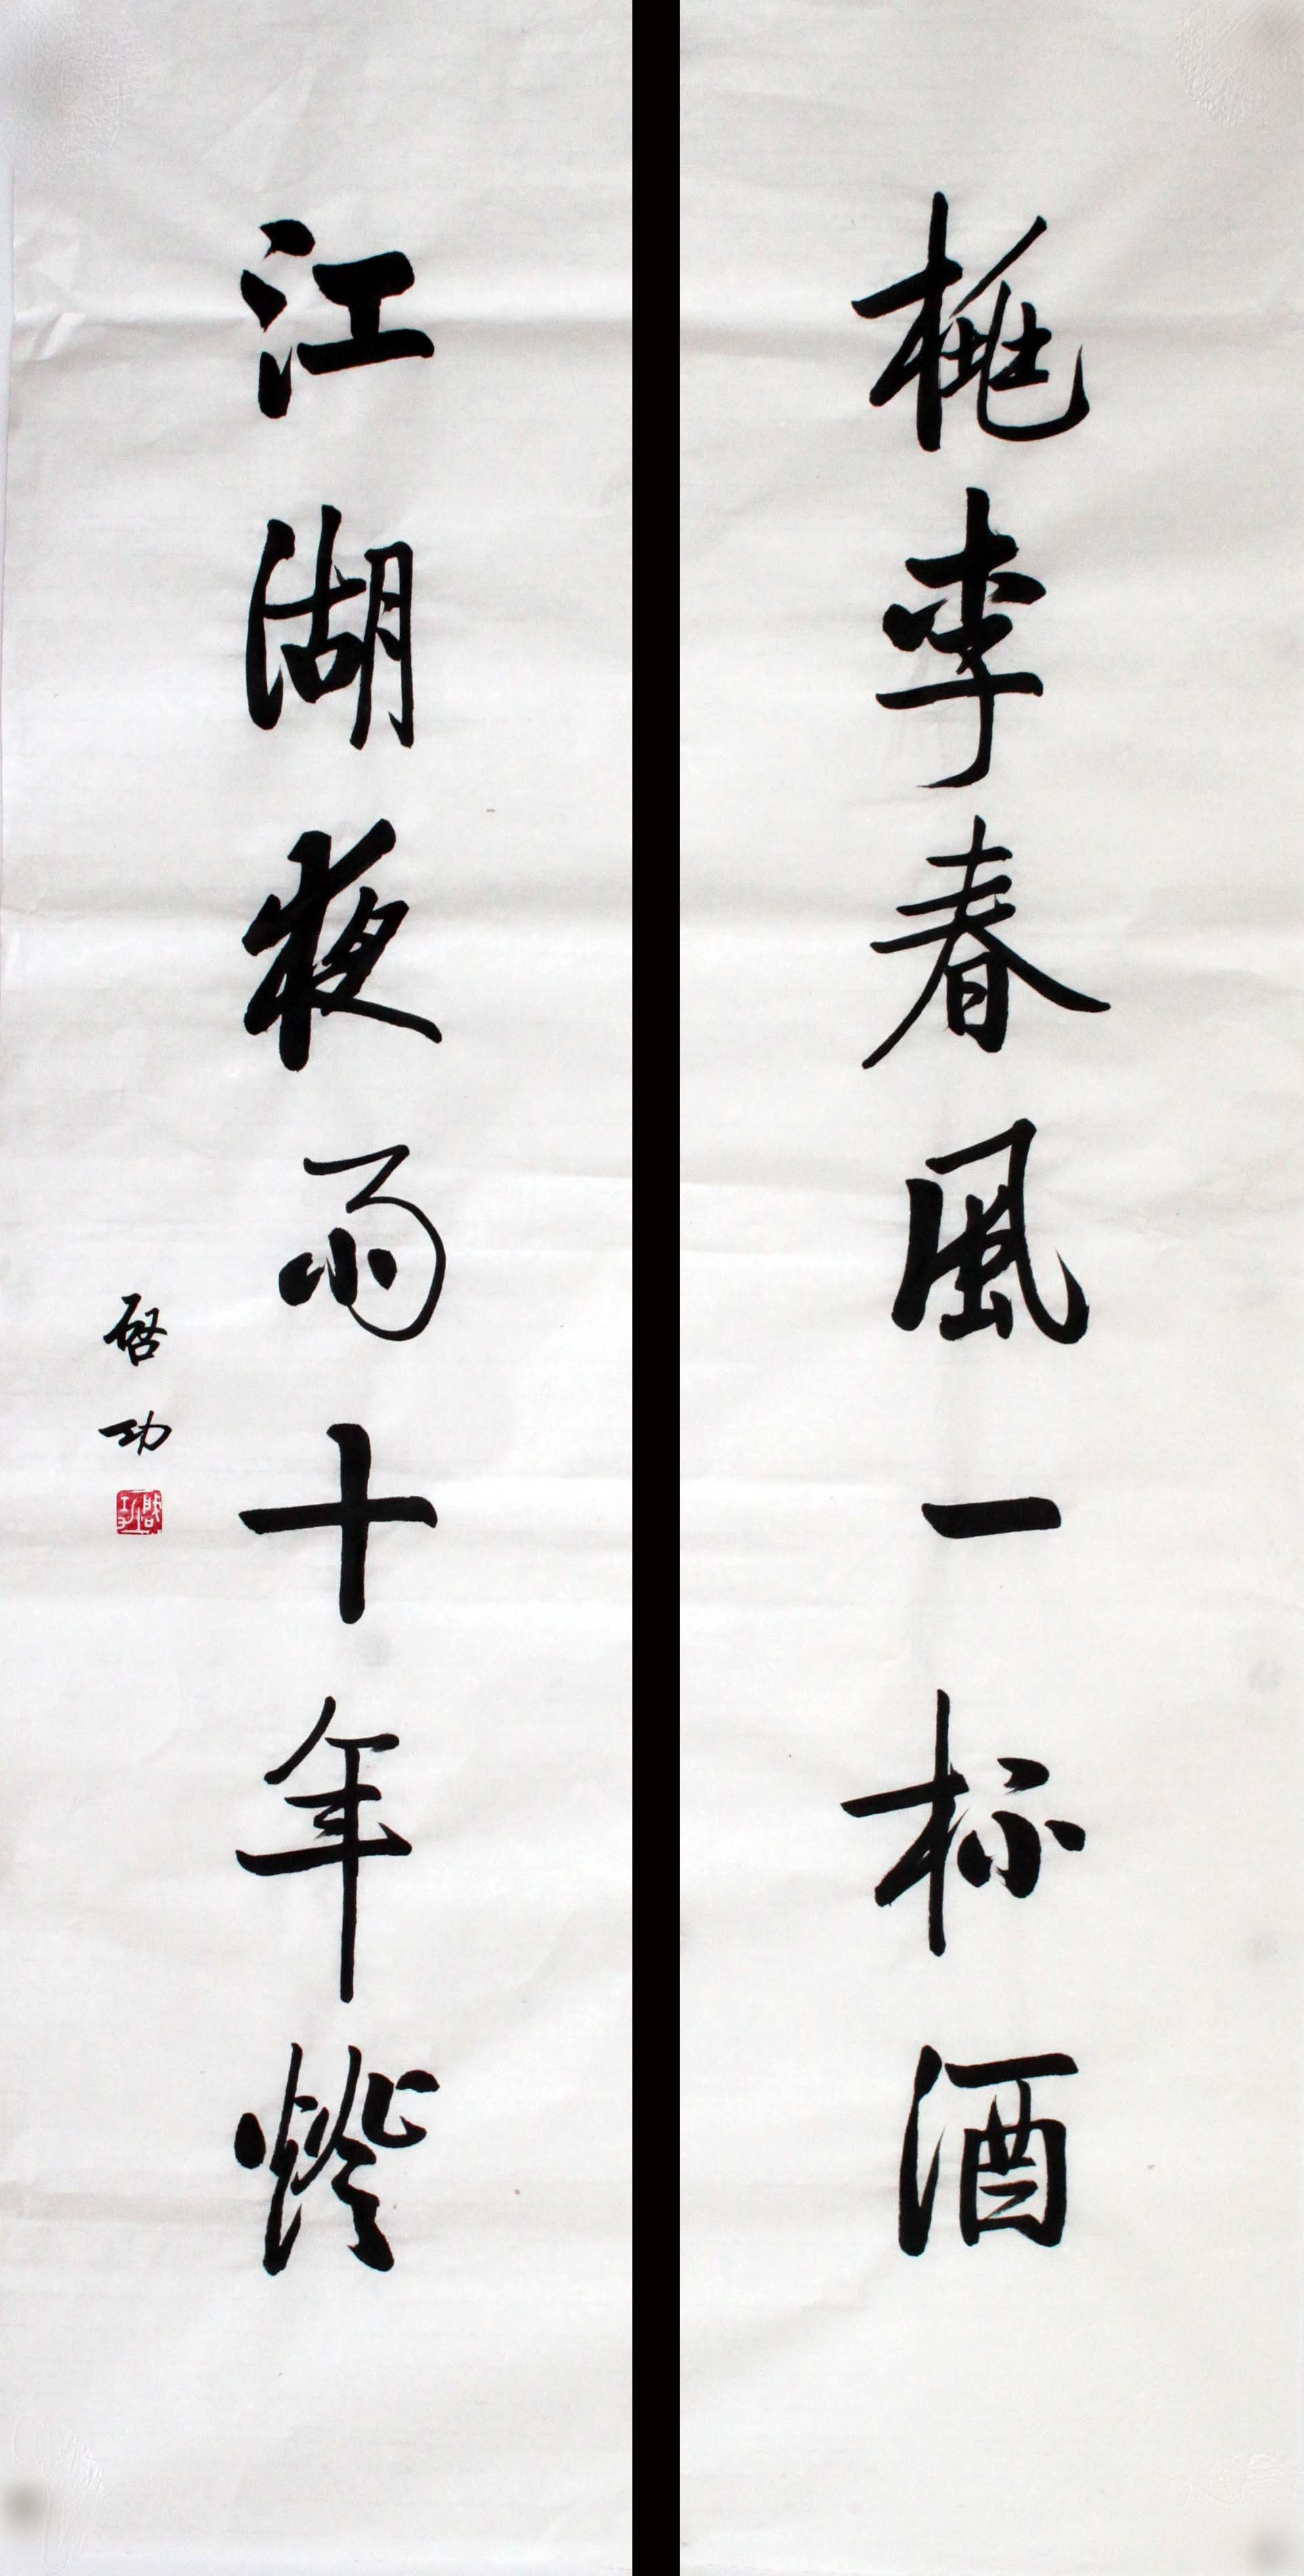 桃李春風一杯酒
江湖夜雨十年燈
啓功
啓功